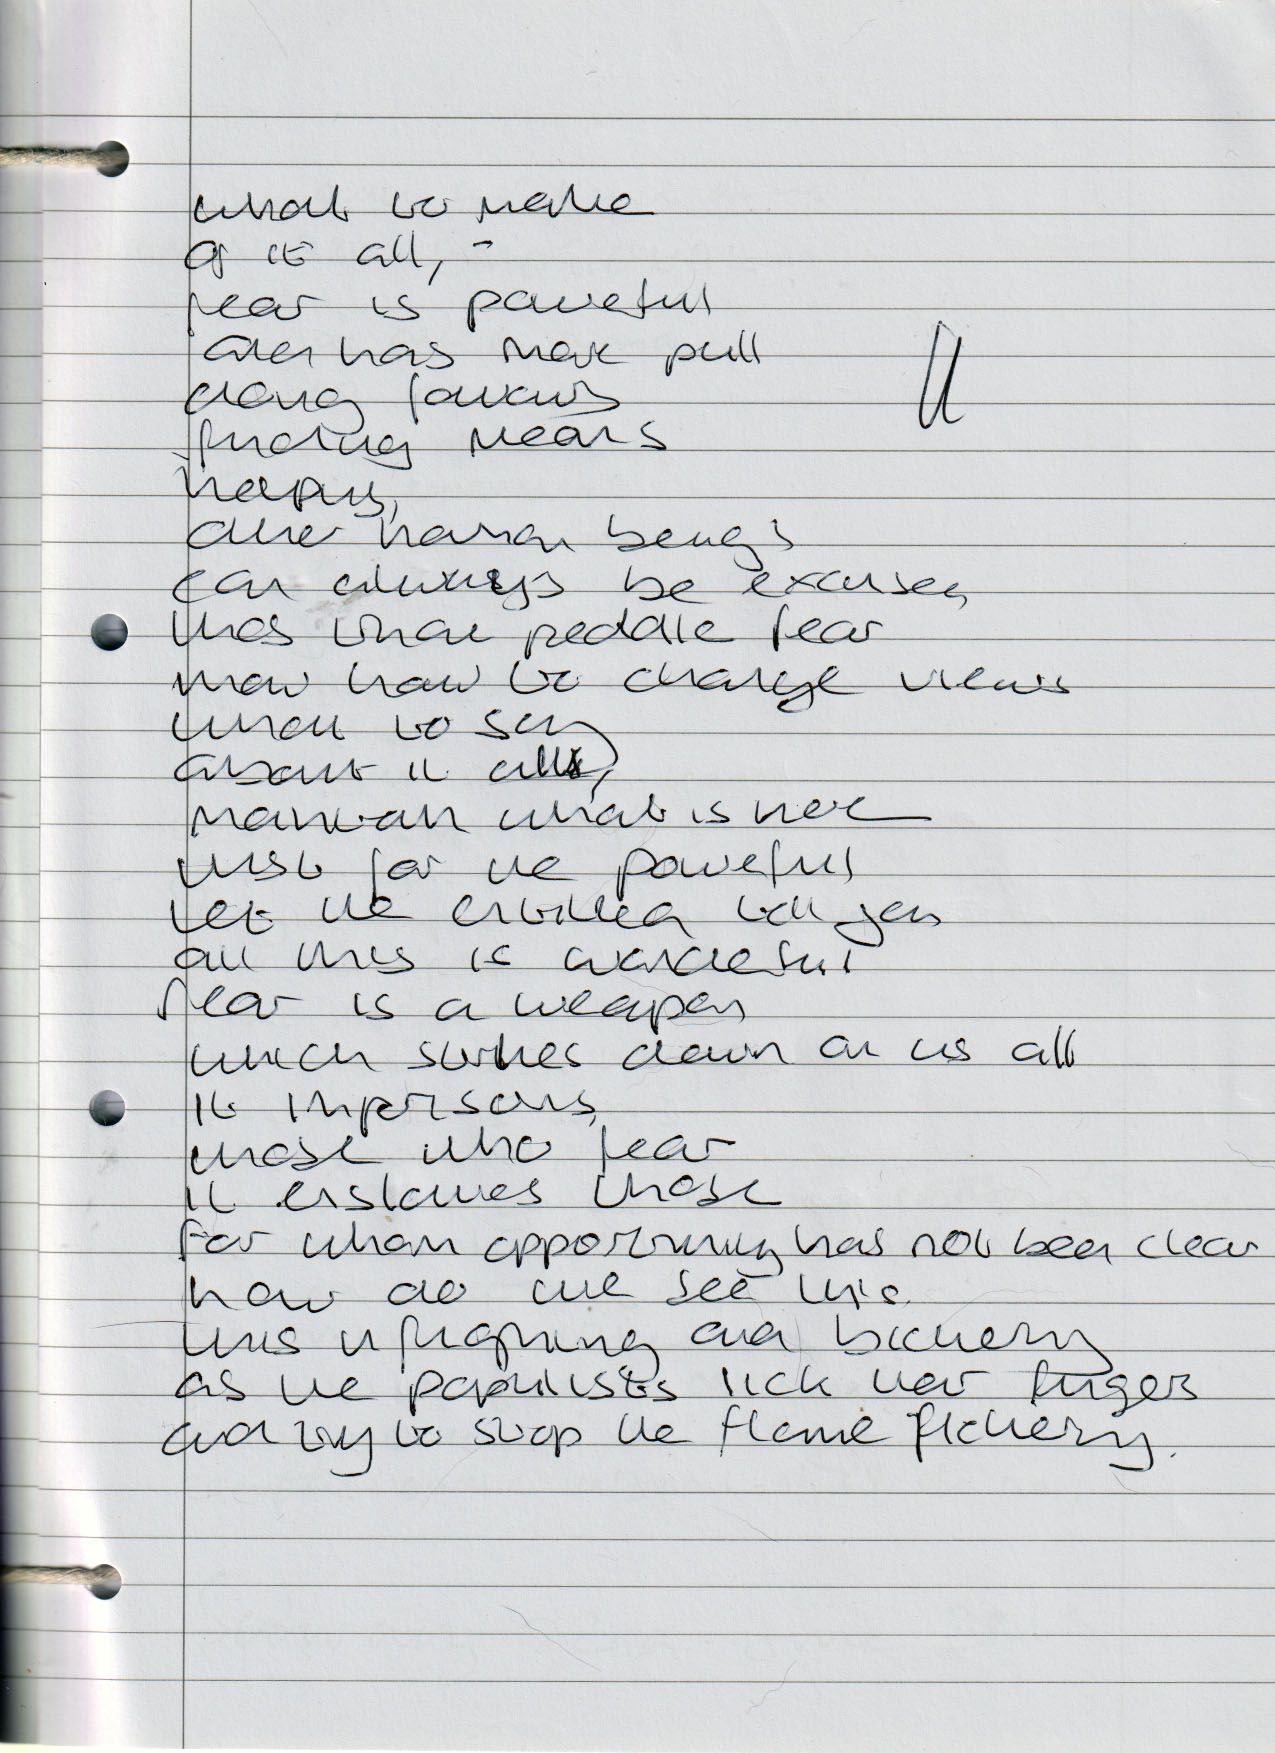 what to make
of it all, -
fear is powerful
has more pull
doing favours
finding means
helping,
other human beings
can always be excuses,
those whose peddle fear
know how to change views
what to say
about it all,
maintain what is here
must for the powerful
let the entitled tell you
all this is wonderful
fear is a weapon
which strikes down on us all
it imprisons,
those who fear
it enslaves those
for whom opportunity has not been clear
how do we see this
this infighting and bickering
as the populists lick their fingers
and try to stop the flame flickering.